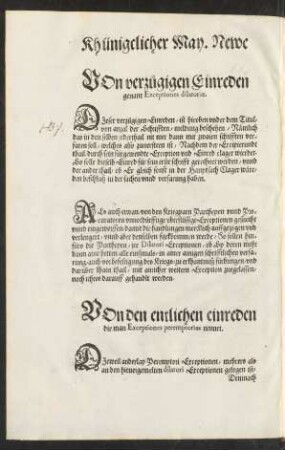 Khünigelicher May. Newe
Von verzügigen Einreden
genant Exceptiones dilatorie.
Diser verzügigen Einreden, ist hieoben vnder dem Titul
von anzal der Schrifften, meldung beschehen, Nämlich
das in den selben ieder thail nit mer dann mit zwayen schrifften ver-
faren soll,
thail durch sein fürgewendte Exception vnd Einred clager
Also solle dieselb Einred für sein erste schrifft gerechnet werden, vnnd
der ander thail, ob Er gleich sonst in der Hauptsach Clager wäre
den beschluß in der sachen vnnd verfarung haben.
Als auch etwan von den Partheyen vnnd Pro-
curatoren vnnotdürfftige überflüssige Exceptionen gesuecht
vnnd eingeworffen damit die handlungen merklich auffgezogen vnd
verlengert, vnnd aber derselben fürkhommen werde, So sollen hin-
für die Partheyen, jre Dilatori Exceptionen, ob Sy deren mehr
dann aine hetten alle ainsmals, in ainer ainigen schrifftlichen verfa-
rung, auch vor befestigung des Kriegs, zu erhanntnuß fürbringen, vnd
darüber khain thail, mit ainicher weitern Exception zuegelassen,
noch ichtes darauff gehandlt werden.
Von den entlichen einreden
die man Exceptiones peremptorias nennet.
Dieweil anderlay Peremptori Exceptionen, mehrers als
an den hieuorgemelten dilatori Exceptionen gelegen ist,
Demnach